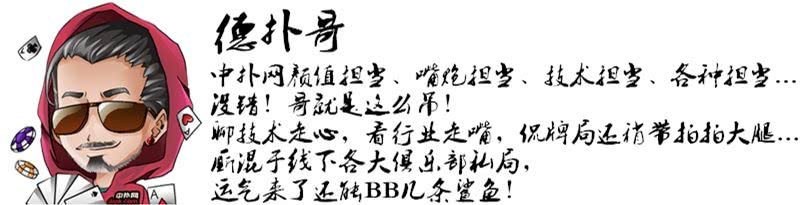 德扑哥
中扑网颜值担当、嘴炮担当、技术担当、各种担当...
没错！哥就是这么吊！
聊技术走心，看行业走嘴，侃牌局还捎带拍拍大腿...
厮混于线下各大俱乐部私局，
运气来了还能BB几条鲨鱼！
中扑网
A